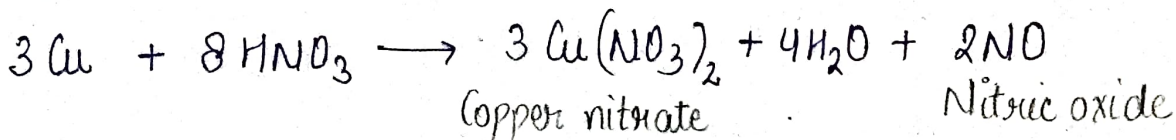 3 Cu + 8 HNO₃ ⟶ 3 Cu(NO₃)₂ + 4H₂O + 2NO
Copper nitrate Nitric oxide